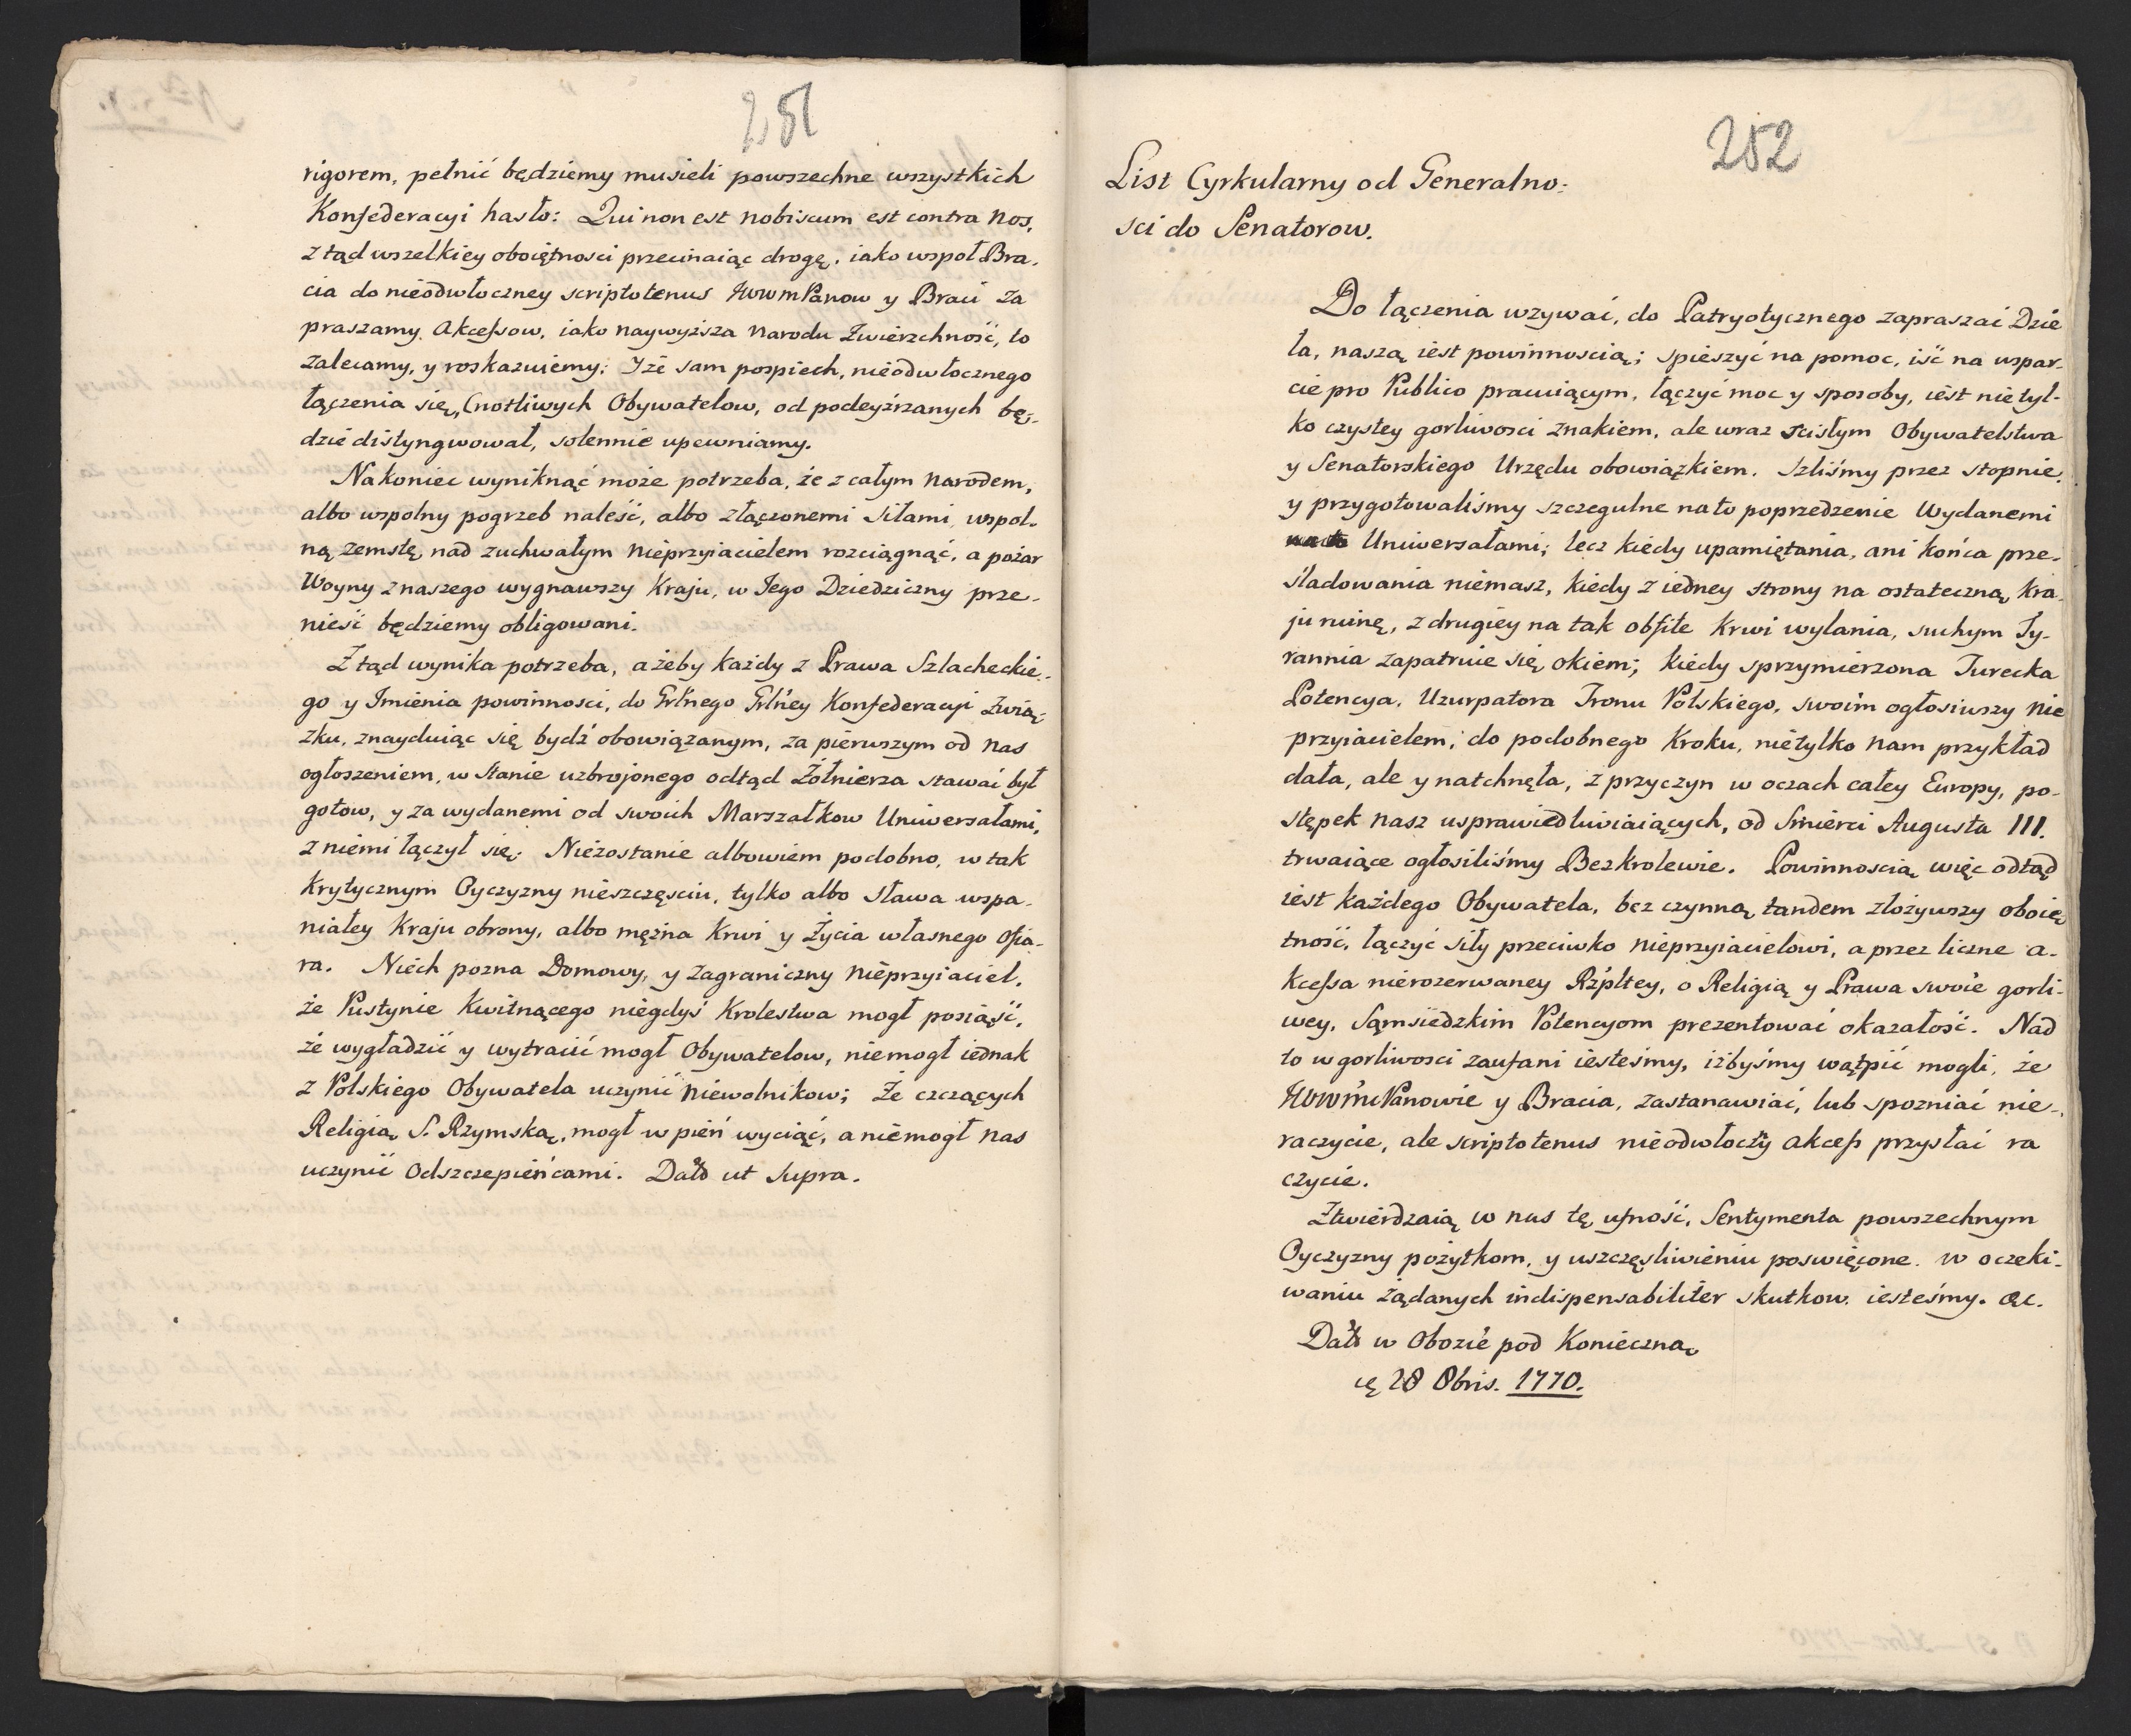 251
rigorem, pełnić będziemy musieli powszechne wszystkich
Konfederacyi hasło: Qui non est nobiscum est contra nos,
z tąd wszelkiey oboiętnosci przecinaiąc drogę, iako wspoł Bra-
cia do nieodwłoczney scriptotenus JWWmPanow y Braci za
praszamy Akcessow, iako naywyższa Narodu Zwierzchność, to
zalecamy, y roskazuiemy: Iże sam pospiech, nieodwłocznego
łączenia się, Cnotliwych Obywatelow, od podeyźrzanych bę-
dzie distyngwował, solennie upewniamy.
Nakoniec wyniknąć może potrzeba, że z całym Narodem,
albo wspolny pogrzeb naleść, albo złączonemi siłami wspol-
ną zemstę, nad zuchwałym Nieprzyiacielem rozciągnąć, a pożar
Woyny z naszego wygnawszy Kraju, w Jego Dziedziczny prze-
nieść będziemy obligowani.
Ztąd wynika potrzeba, ażeby każdy z Prawa Szlacheckie-
go y Imienia powinnosci, do Grlnego Grlney Konfederacyi Zwią-
zku, znayduiąc się bydź obowiązanym, za pierwszym od nas
ogłoszeniem, w stanie uzbrojonego odtąd Żółnierza stawać był
gotow, y za wydanemi od swoich Marszałkow Uniwersałami,
z niemi łączył się. Niezostanie albowiem podobno, w tak
krytycznym Oyczyzny nieszczęsciu, tylko albo sława wspa-
niałey Kraju obrony, albo mężna Krwi y Życia własnego Ofia-
ra. Niech pozna Domowy, y zagraniczny Nieprzyiaciel,
że Pustynie kwitnącego niegdyś Krolestwa mogł posiąść,
że wygładzić y wytracić mogł Obywatelow, niemogł iednak
z Polskiego Obywatela uczynić Niewolnikow; Że czczących
Religią S. Rzymską, mogł w pień wyciąć, a niemogł nas
uczynić Odszczepieńcami. Datt ut supra.
252
List Cyrkularny od Generalno:
sci do Senatorow.
Do łączenia wzywać, do Patryotycznego zapraszać Dzie
ła, naszą iest powinnoscią; spieszyć na pomoc, iść na wspar-
cie pro Publico pracuiącym, łączyć moc y sposoby, iest nietyl-
ko czystey gorliwosci znakiem, ale wraz scisłym Obywatelstwa
y Senatorskiego Urzędu obowiązkiem. Szliśmy przez stopnie,
y przygotowaliśmy szczegulne na to poprzedzenie Wydanemi
Uniwersałami; lecz kiedy upamiętania, ani końca prze-
śladowania niemasz, kiedy z iedney strony na ostateczną Kra
ju ruinę, z drugiey na tak obfite Krwi wylania, suchym Ty-
rannia zapatruie się okiem; kiedy sprzymierzona Turecka
Potencya, Uzurpatora Tronu Polskiego, swoim ogłosiwszy Nie
przyiacielem, do podobnego kroku, nietylko nam przykład
dała, ale y natchnęła, z przyczyn w oczach całey Europy, po-
stępek nasz usprawiedliwiaiących, od Smierci Augusta III.
trwaiące ogłosiliśmy Bezkrolewie. Powinnoscią więc odtąd
iest każdego Obywatela, bez czynną tandem złożywszy oboię
tność, łączyć siły przeciwko Nieprzyiacielowi, a przez liczne a-
kcessa nierozerwaney Rzpltey, o Religią y Prawa swoie gorli-
wey, Sąmsiedzkim Potencyom prezentować okazałość. Nad
to w gorliwosci zaufani iestesmy, iżbyśmy wątpić mogli, że
JWWmPanowie y Bracia, zastanawiać, lub spozniać nie-
raczycie, ale scriptotenus nieodwłoczły akcess przysłać ra
czycie.
Ztwierdzaią w nas tę ufność, Sentymenta powszechnym
Oyczyzny pożytkom, y uszczęsliwieniu poswięcone. w oczeki-
waniu żądanych indispensabiliter skutkow. iesteśmy. &c.
Datt w Obozie pod Konieczną
28 8bris. 1770.